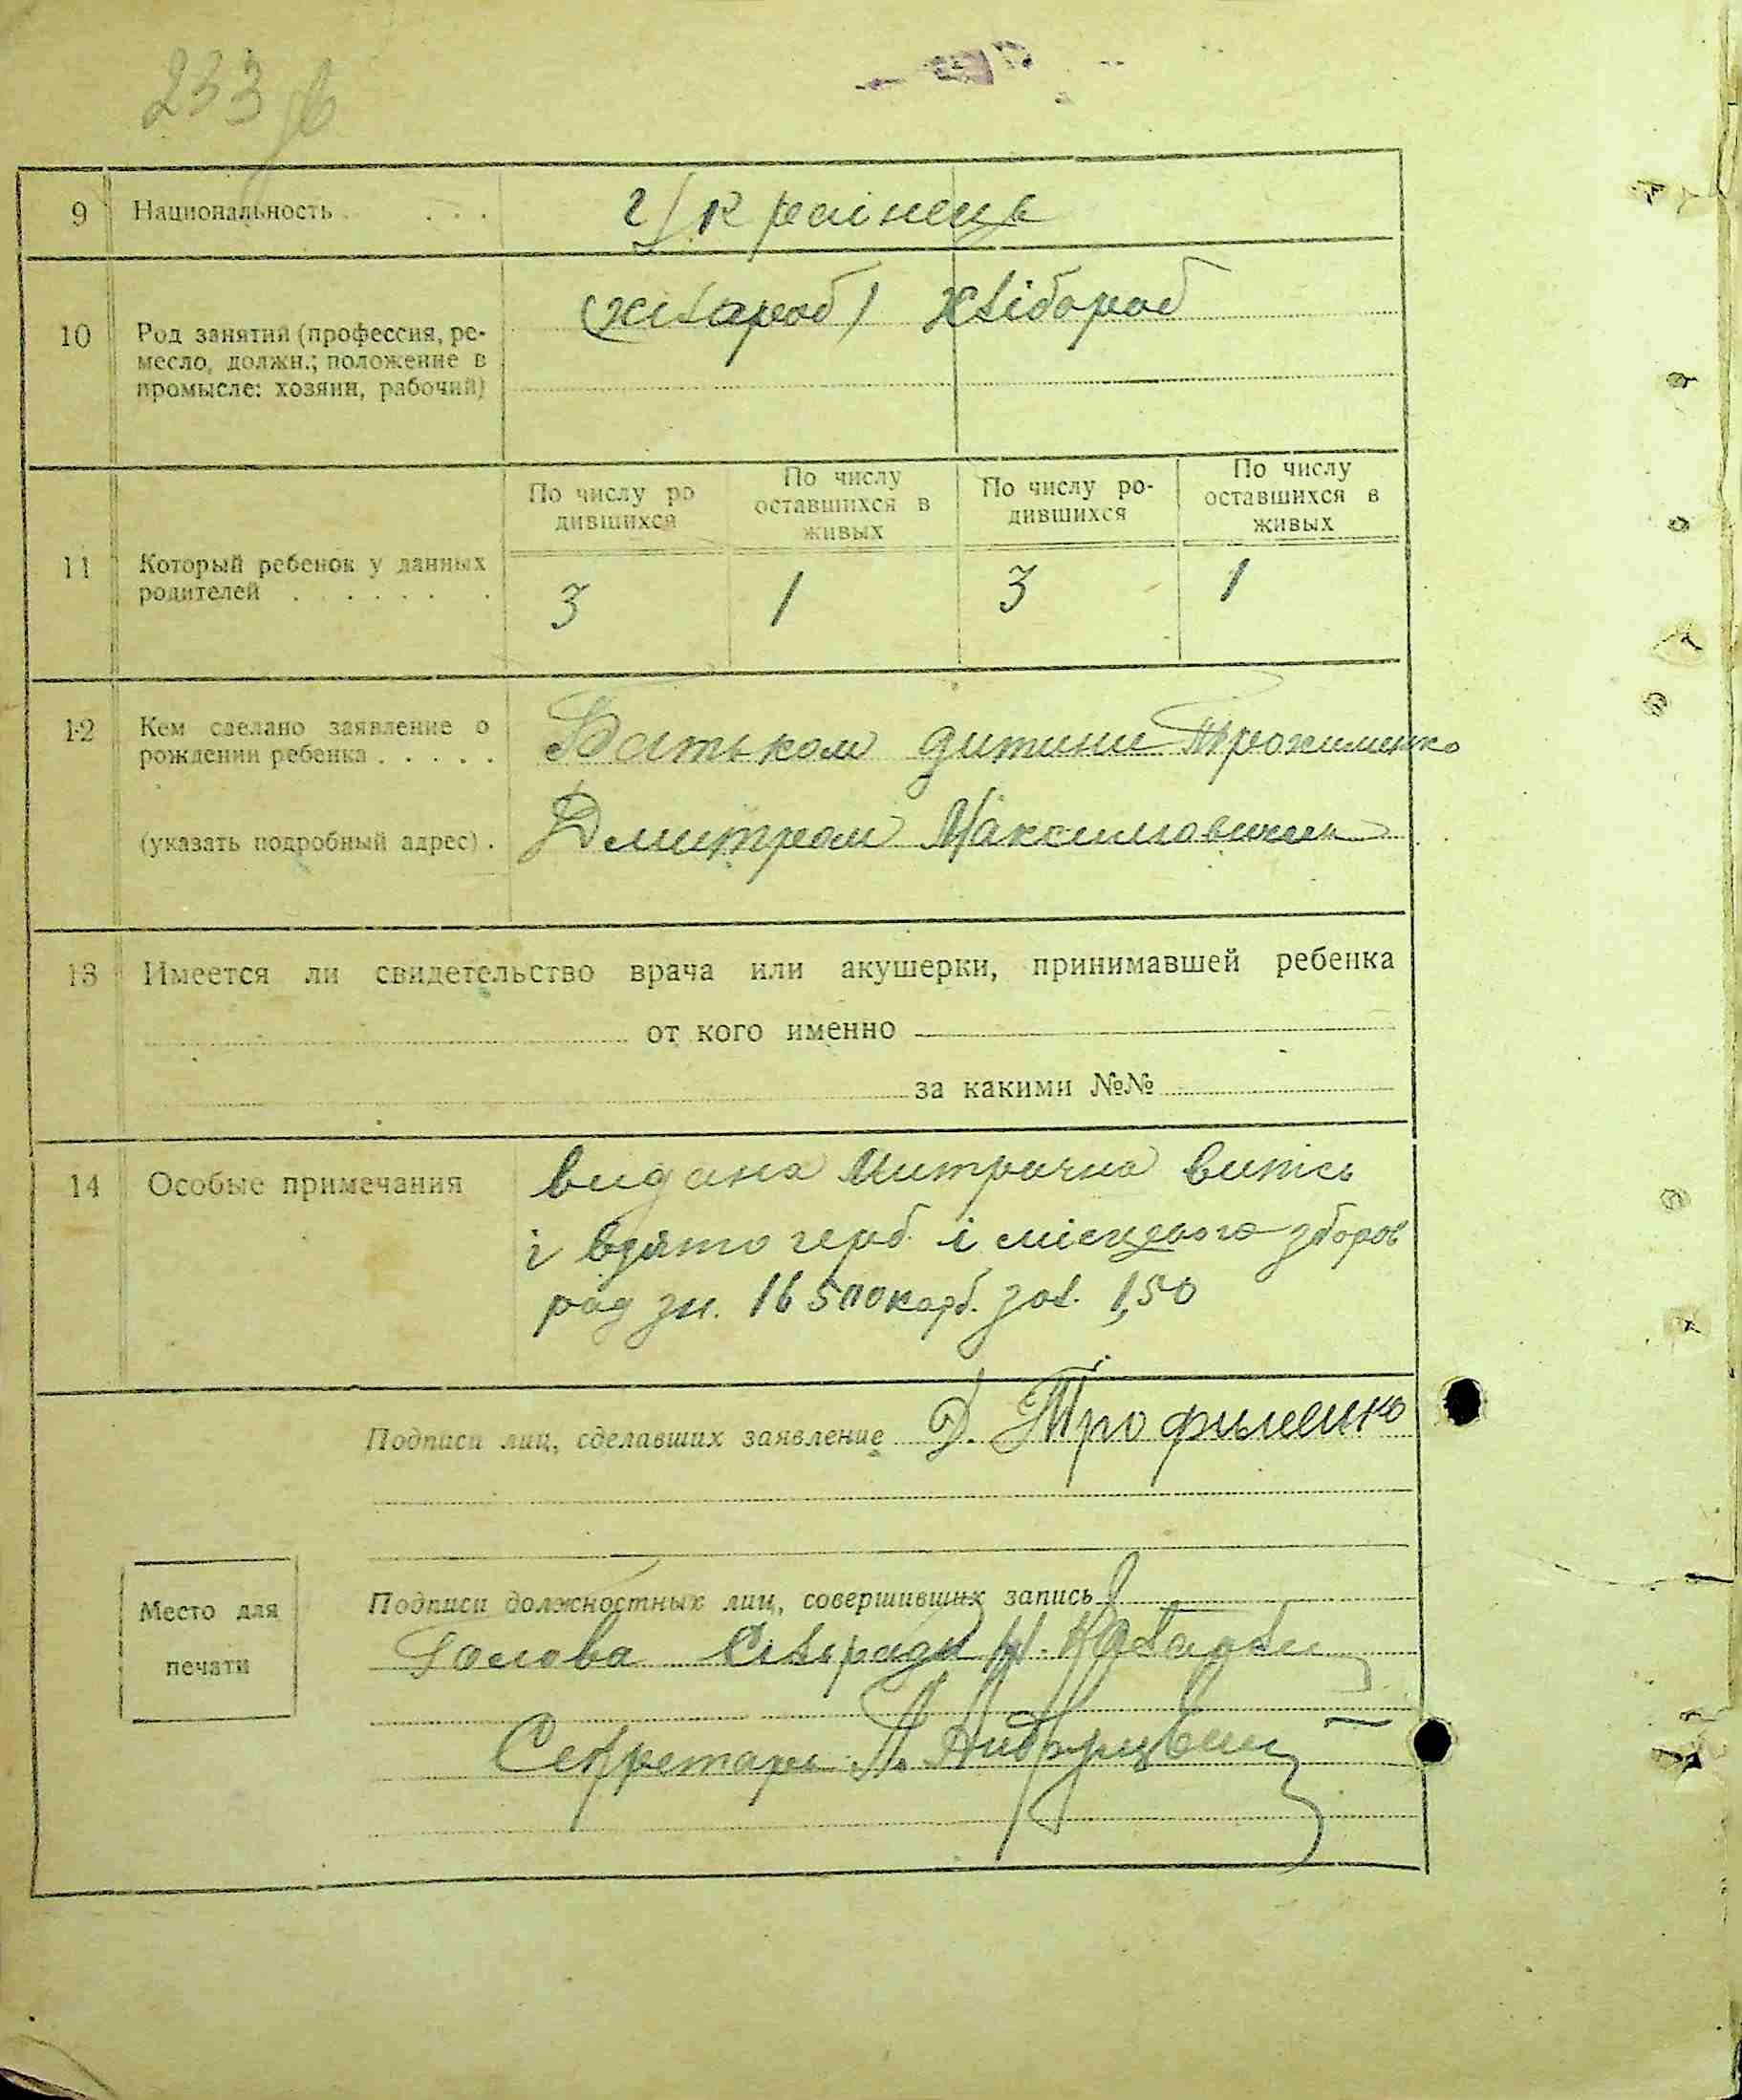 233
9 Национальность . . . . Українець
10 Род занятий (профессия, ре-
месло, должн.; положение в
промысле: хозяин, рабочий)
(хлібороб) хлібороб
11 Который ребенок у данных
родителей . . . . . . .
По числу ро
дившихся
По числу
оставшихся в
живых
По числу ро-
дившихся
По числу
оставшихся в
живых
3 1 3 1
12 Кем сделано заявление о
рождении ребенка . . . . .
(указать подробный адрес) .
Батьком дитини Трохименко
Дмитром Максимовичем
13 Имеется ли свидетельство врача или акушерки, принимавшей ребенка
от кого именно
за какими №№
14 Особые примечания
видана метрична випись
і взято герб. і місцевого зборов
рад зн. 16500 карб. зол. 1,50
Подписи лиц, сделавших заявление Д. Трофименко
Подписи должностных лиц, совершивших запись
Голова Сільради
Секретарь
Место для
печати